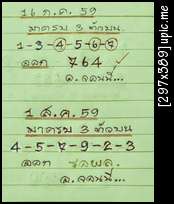 16 ก.ค. 59
มาครบ 3 ตัวบน
1-3-4-5-6-7
ออก 764 ✓
อ.จอนนี่...
1 ส.ค. 59
มาครบ 3 ตัวบน
4-5-7-9-2-3
ออก รอผล
อ.จอนนี่...
[297x389] upic.me